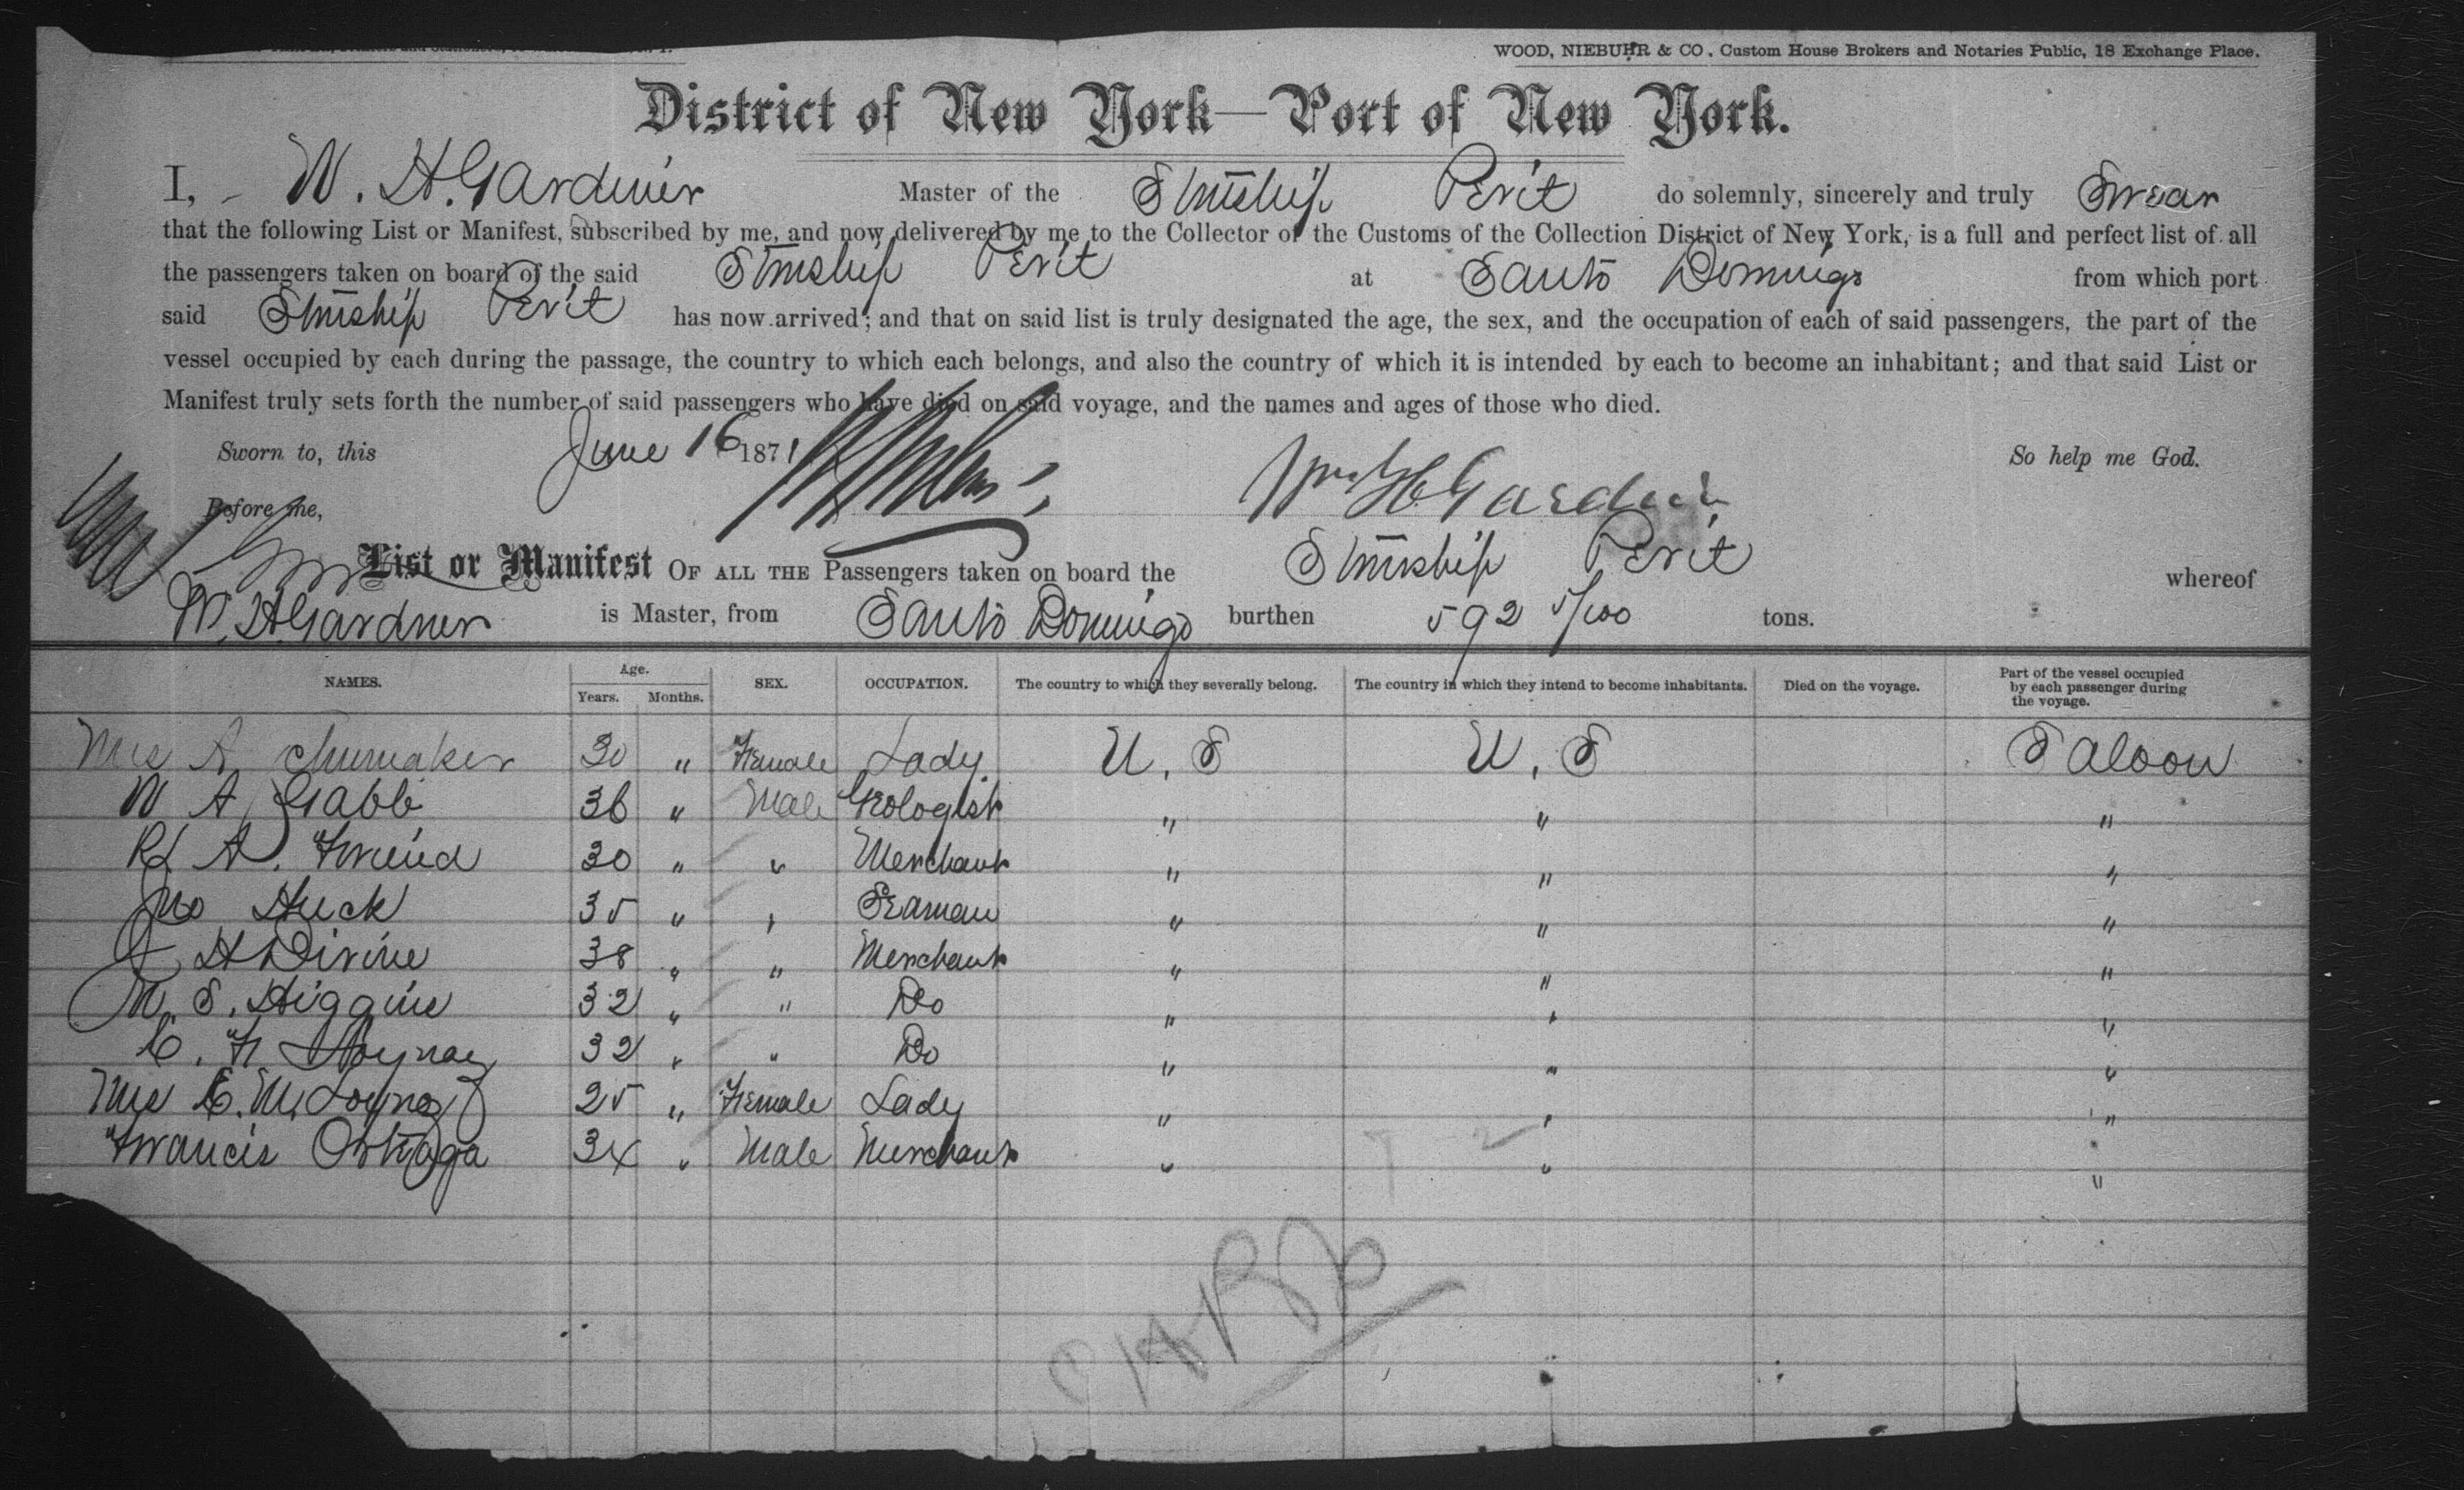 WOOD, NIEBUHR & CO., Custom House Brokers and Notaries Public, 18 Exchange Place.
District of New York—Port of New York.
I, W. H. Gardiner Master of the Stmship Perit do solemnly, sincerely and truly Swear
that the following List or Manifest, subscribed by me, and now delivered by me to the Collector of the Customs of the Collection District of New York, is a full and perfect list of all
the passengers taken on board of the said Stmship Perit at Santo Domingo from which port
said Stmship Perit has now arrived; and that on said list is truly designated the age, the sex, and the occupation of each of said passengers, the part of the
vessel occupied by each during the passage, the country to which each belongs, and also the country of which it is intended by each to become an inhabitant; and that said List or
Manifest truly sets forth the number of said passengers who have died on said voyage, and the names and ages of those who died.
Sworn to, this June 16 1871 So help me God.
Before me, Wm H Gardner
List or Manifest OF ALL THE Passengers taken on board the Stmship Perit whereof
W. H. Gardner is Master, from Santo Domingo burthen 592 5/100 tons.
NAMES. Age. Years. Months. SEX. OCCUPATION. The country to which they severally belong. The country in which they intend to become inhabitants. Died on the voyage. Part of the vessel occupied by each passenger during the voyage.
Mrs A Chumaker 30 " Female Lady U, S U, S Saloon
W A Gabb 36 " Male Geologist " " "
R A. Friend 30 " " Merchant " " "
Jno Huck 35 " " Seaman " " "
J H Divine 38 " " Merchant " " "
M. S. Higgins 32 " " Do " " "
C. F Loynaz 32 " " Do " " "
Mrs C. M. Loynaz 25 " Female Lady " " "
Francis Ortega 34 " Male Merchant " " "